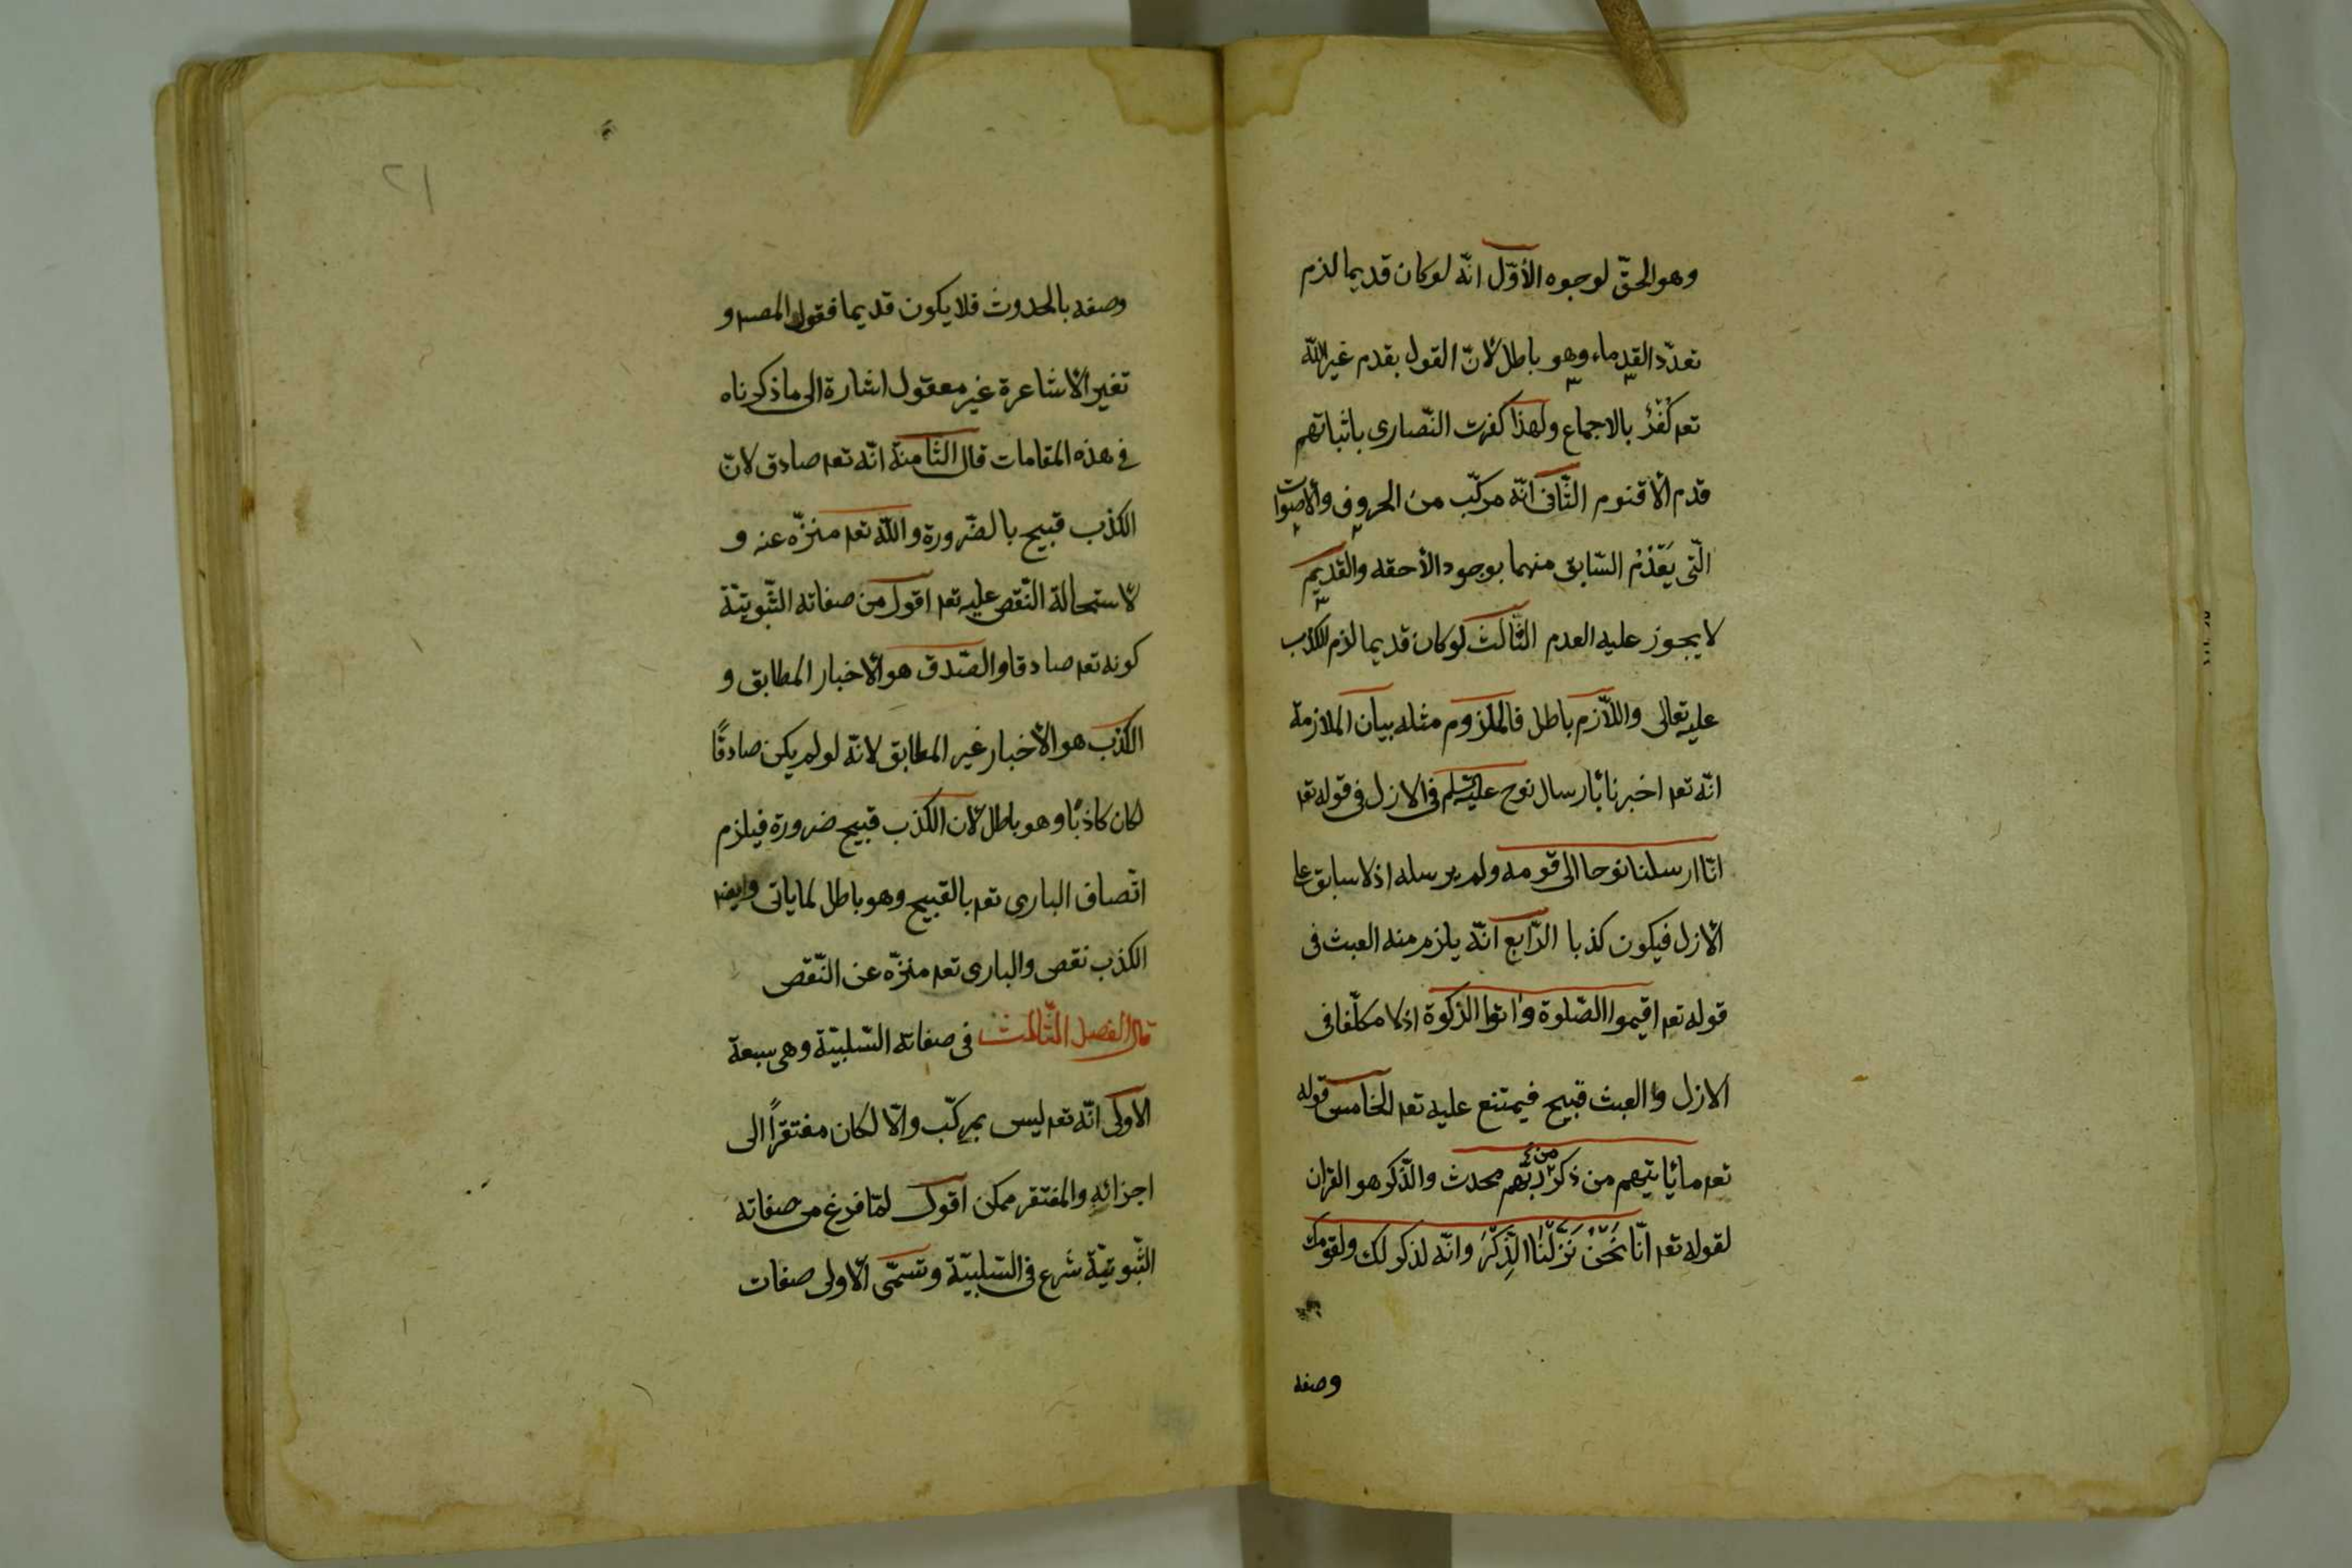 وهو الحقّ لوجوه الأوّل انّه لو كان قديما لزم
تعدّد القدماء وهو باطل لأنّ القول بقدم غير اللّه
تعه كُفْرٌ بالاجماع ولهذا كفرت النّصارى باثباتهم
قدم الأقنوم الثّانى انّه مركّب من الحروف والأصوات
الّتى يَعْدَمُ السّابق منهما بوجود الأحقه والقديم
لا يجوز عليه العدم الثّالث لو كان قديما لزم الكذب
عليه تعالى واللّازم باطل فالملزوم مثله بيان الملازمة
انّه تعه اخبرنا بأرسال نوح عليه السّلم فى الازل فى قوله تعه
انّا ارسلنا نوحا الى قومه ولم يرسله اذ لا سابق على
الأزل فيكون كذبا الرّابع انّه يلزم منه العبث فى
قوله تعه اقيموا الصّلوة واتوا الزّكوة اذ لا مكلّفا فى
الازل والعبث قبيح فيمتنع عليه تعه الخامس قوله
تعه ما يأتيهم من ذكر من ربّهم محدث والذّكر هو القران
لقوله تعه انّا نَحْنُ نَزَّلْنَا الذِّكْرَ وانّه لذكر لك ولقومك
وصفه
٢١
وصفه بالحدوث فلا يكون قديما فقول المصـ و
تغير الأشاعرة غير معقول اشارة الى ما ذكرناه
فى هذه المقامات قال الثّامنة انّه تعه صادق لانّ
الكذب قبيح بالضّرورة واللّه تعه منزّه عنه و
لأستحالة النّقص عليه تعه اقول من صفاته الثّبوتيّة
كونه تعه صادقا والصّدق هو الأخبار المطابق و
الكذب هو الأخبار غير المطابق لانّه لو لم يكن صادقًا
لكان كاذبًا وهو باطل لأن الكذب قبيح ضرورة فيلزم
اتّصاف البارى تعه بالقبيح وهو باطل لما ياتى وايضه
الكذب نقص والبارى تعه منزّه عن النّقص
قال الفصل الثّالث فى صفاته السّلبيّة وهى سبعة
الاولى انّه تعه ليس بمركّب والّا لكان مفتقرًا الى
اجزائه والمفتقر ممكن اقول لمّا فرغ من صفاته
الثّبوتيّة شرع فى السّلبيّة وتسمّى الأولى صفات